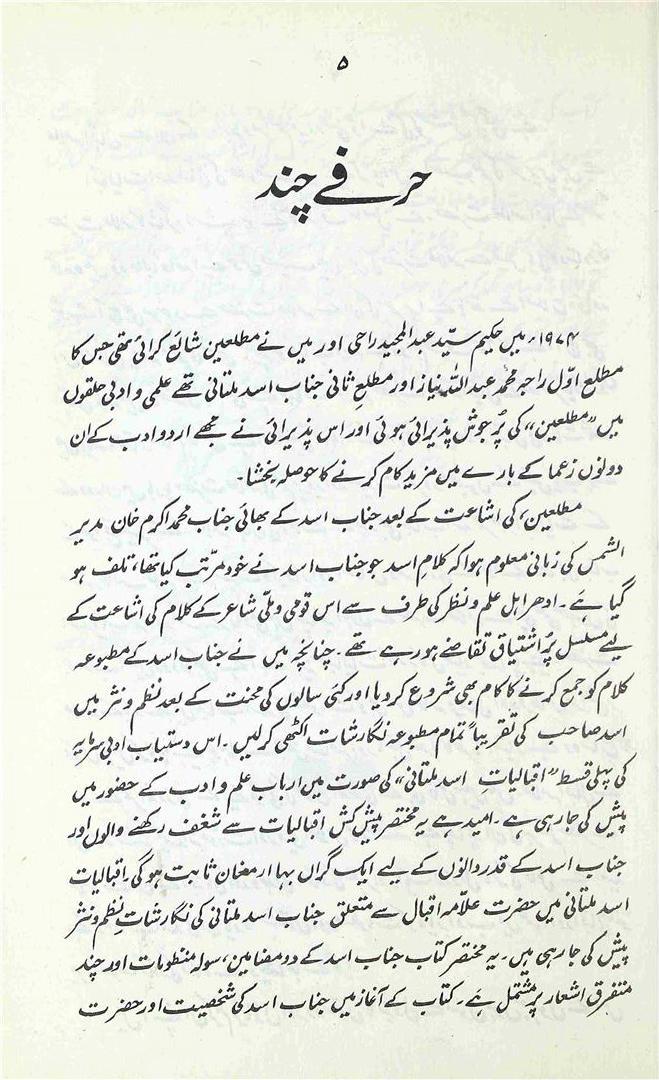 ۵
حرفے چند
۱۹۷۴ء میں حکیم سیّد عبدالمجید راحی اور میں نے مطلعین شائع کرائی تھی جس کا
مطلع اوّل راجہ محمد عبداللہ نیاز اور مطلعِ ثانی جناب اسد ملتانی تھے علمی و ادبی حلقوں
میں "مطلعین" کی پُرجوش پذیرائی ہوئی اور اس پذیرائی نے مجھے اردو ادب کے ان
دونوں زعما کے بارے میں مزید کام کرنے کا حوصلہ بخشا۔
مطلعین، کی اشاعت کے بعد جناب اسد کے بھائی جناب محمد اکرم خان مدیر
الشمس کی زبانی معلوم ہوا کہ کلامِ اسد جو جناب اسد نے خود مرتّب کیا تھا، تلف ہو
گیا ہے۔ ادھر اہل علم و نظر کی طرف سے اس قومی و ملّی شاعر کے کلام کی اشاعت کے
لیے مسلسل پُراشتیاق تقاضے ہو رہے تھے۔ چنانچہ میں نے جناب اسد کے مطبوعہ
کلام کو جمع کرنے کا کام بھی شروع کر دیا اور کئی سالوں کی محنت کے بعد نظم و نثر میں
اسد صاحب کی تقریباً تمام مطبوعہ نگارشات اکٹھی کر لیں۔ اس دستیاب ادبی سرمایہ
کی پہلی قسط "اقبالیاتِ اسد ملتانی" کی صورت میں اربابِ علم و ادب کے حضور میں
پیش کی جا رہی ہے۔ امید ہے یہ مختصر پیش کش اقبالیات سے شغف رکھنے والوں اور
جناب اسد کے قدردانوں کے لیے ایک گراں بہا ارمغان ثابت ہو گی، اقبالیات
اسد ملتانی میں حضرت علاّمہ اقبال سے متعلق جناب اسد ملتانی کی نگارشاتِ نظم و نثر
پیش کی جا رہی ہیں۔ یہ مختصر کتاب جناب اسد کے دو مضامین، سولہ منظومات اور چند
متفرق اشعار پر مشتمل ہے۔ کتاب کے آغاز میں جناب اسد کی شخصیت اور حضرت